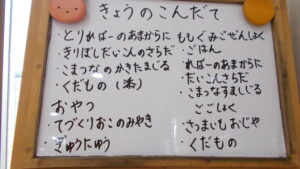 きょうのこんだて
・とりればーのあまからに
・きりぼしだいこんのさらだ
・こまつなのかきたまじる
・くだもの(添)
おやつ
・てづくりおこのみやき
・ぎゅうにゅう
ももぐみごぜんしょく
・ごはん
・ればーのあまからに
・だいこんさらだ
・こまつなすましじる
ごごしょく
・さつまいもおじや
・くだもの